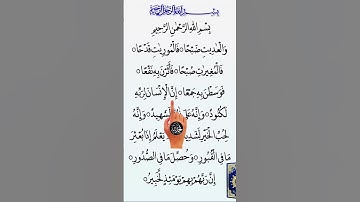 بِسْمِ اللهِ الرَّحْمٰنِ الرَّحِيْمِ
بِسْمِ اللهِ الرَّحْمٰنِ الرَّحِيْمِ
وَالْعٰدِيٰتِ ضَبْحًا فَالْمُوْرِيٰتِ قَدْحًا
فَالْمُغِيْرٰتِ صُبْحًا فَاَثَرْنَ بِهٖ نَقْعًا
فَوَسَطْنَ بِهٖ جَمْعًا اِنَّ الْاِنْسَانَ لِرَبِّهٖ
لَكَنُوْدٌ وَاِنَّهٗ عَلٰى لَشَهِيْدٌ وَاِنَّهٗ
لِحُبِّ الْخَيْرِ لَشَدِيْدٌ يَعْلَمُ اِذَا بُعْثِرَ
مَا فِى الْقُبُوْرِ وَحُصِّلَ مَا فِى الصُّدُوْرِ
اِنَّ رَبَّهُمْ بِهِمْ يَوْمَئِذٍ لَّخَبِيْرٌ